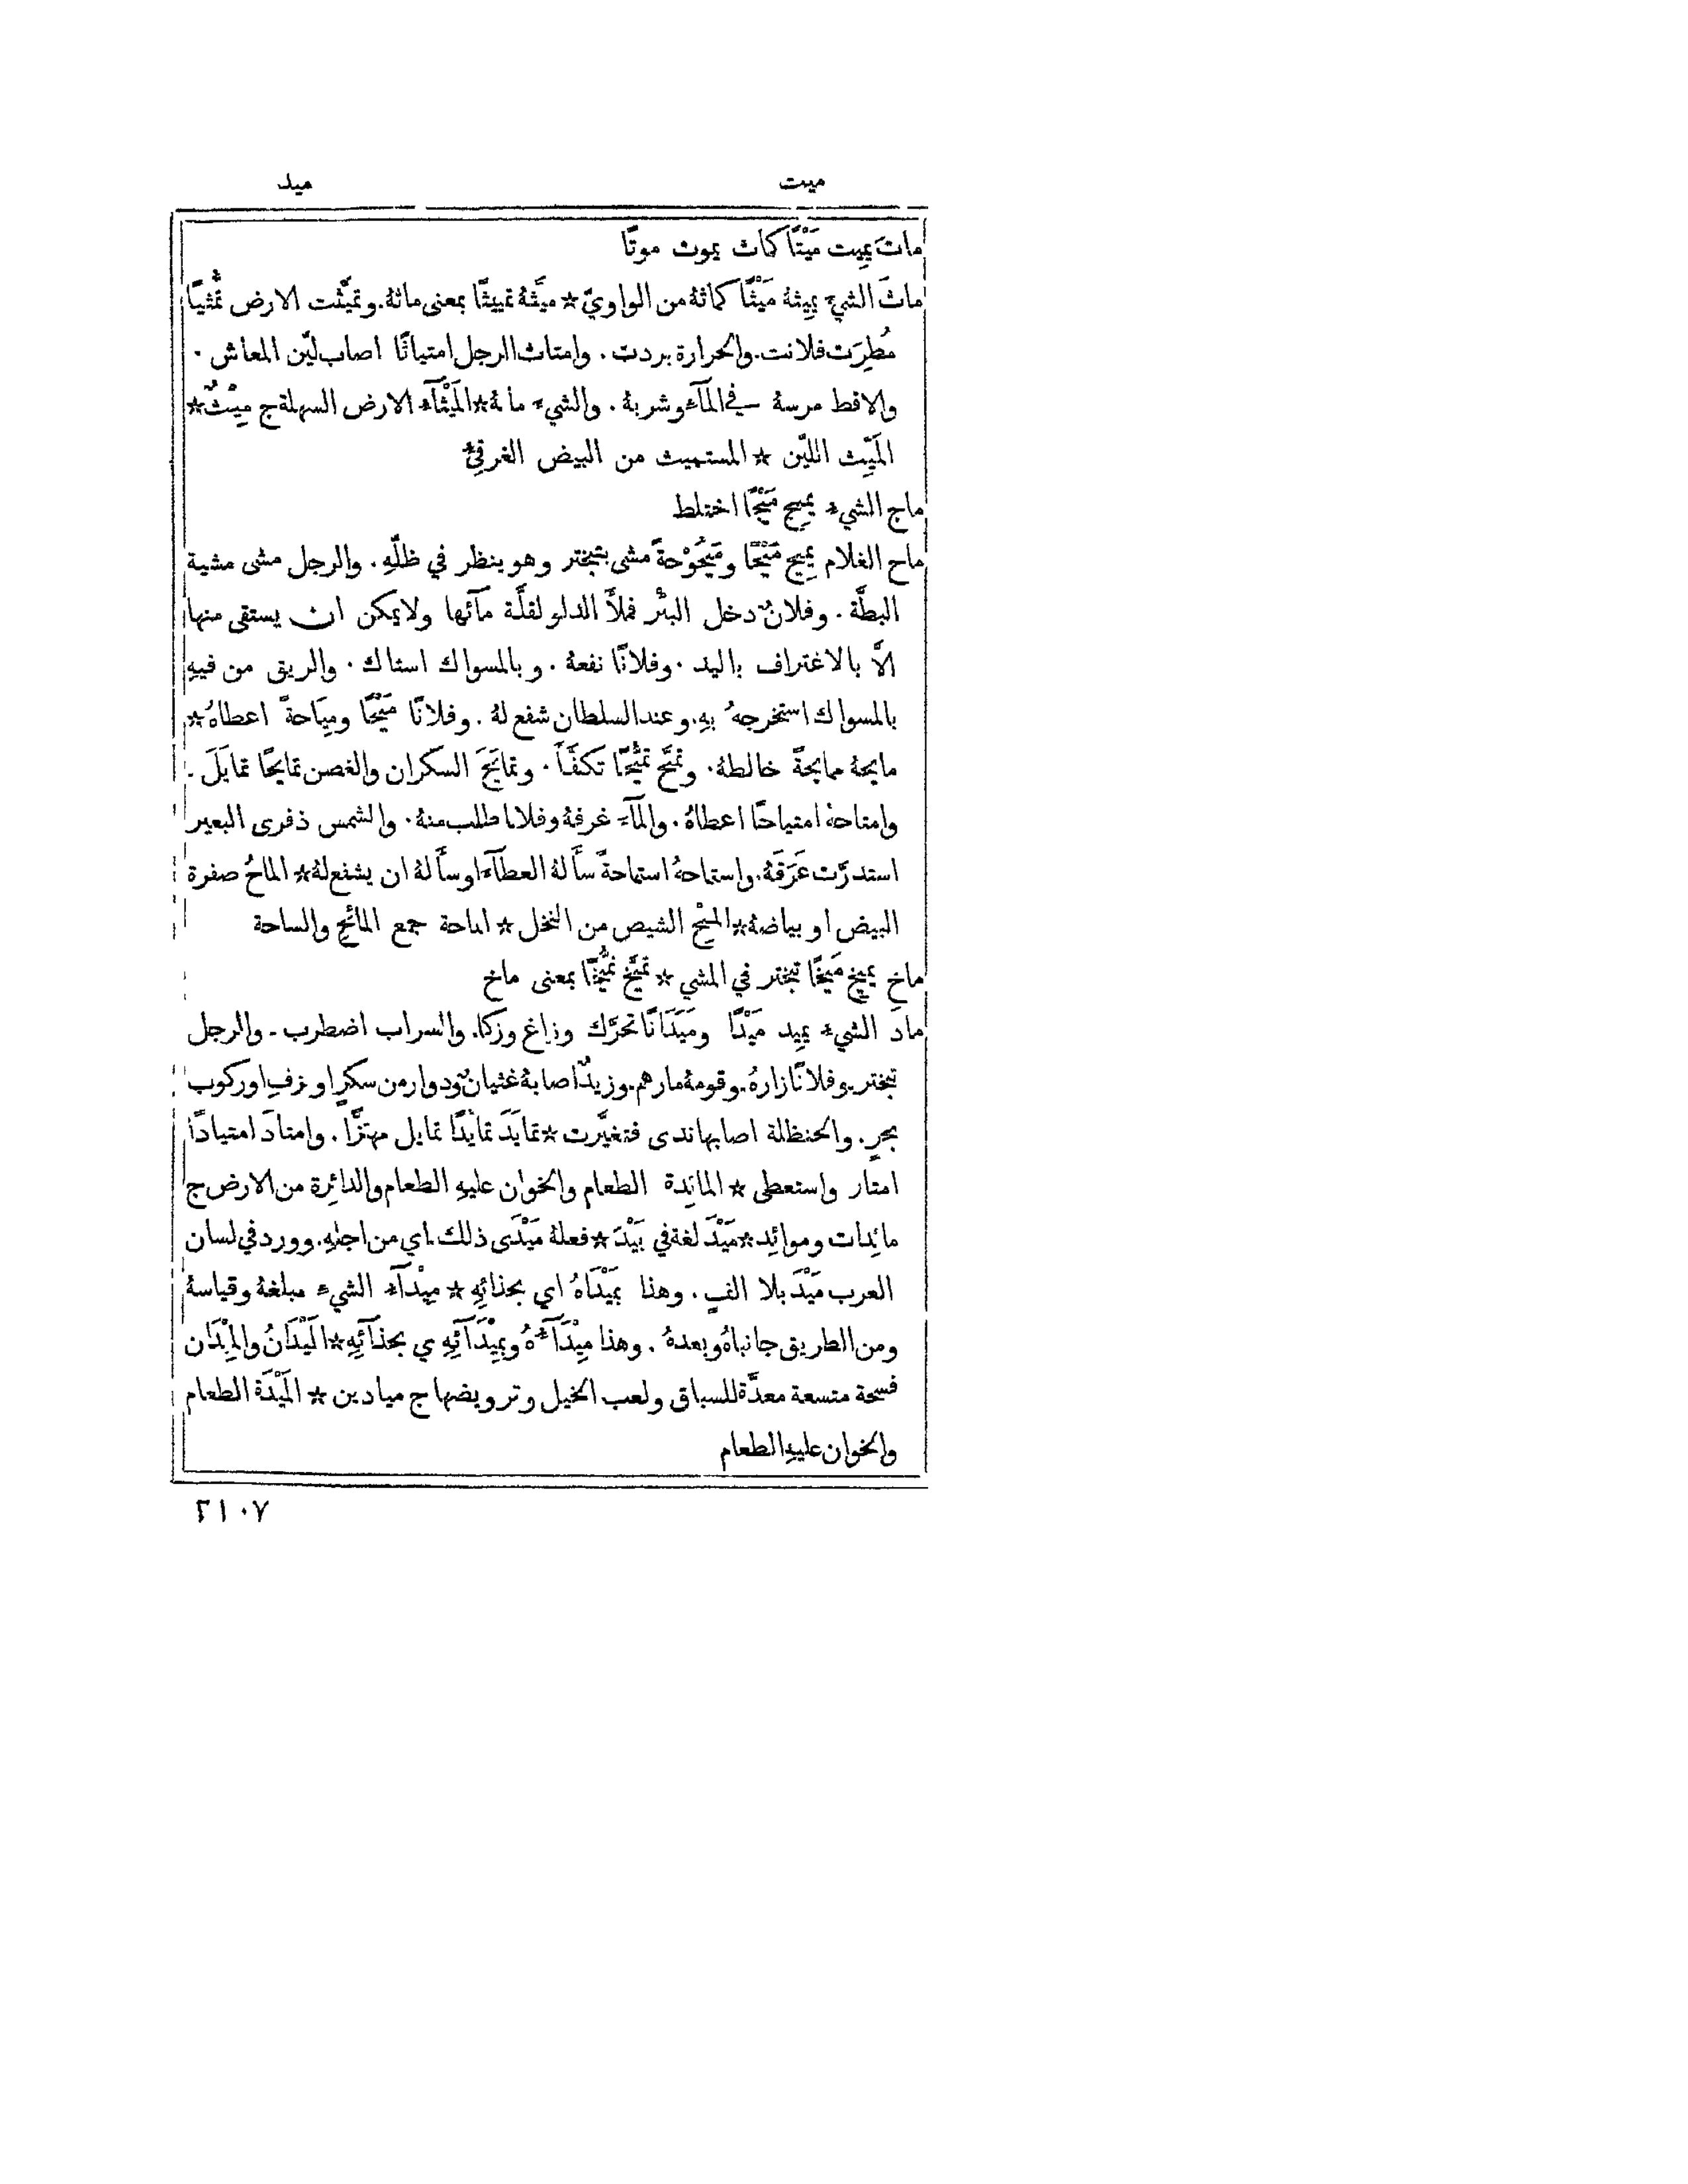 ميت
ميد
ماتَ يَمِيت مَيْتًا كمات يموت موتًا
ماثَ الشيءَ يَمِيثهُ مَيْثًا كماثهُ من الواويّ ★ ميَّثهُ تمييثًا بمعنى ماثهُ. وتميَّثت الارض تميُّثًا
مُطِرَت فلانت. والحرارة بردت. وامتاث الرجل امتياثًا اصاب ليّن المعاش.
والاقط مرسهُ في المآء وشربهُ. والشيءَ ماثهُ ★ المَيْثَآء الارض السهلة ج مِيْثٌ ★
المَيِّث الليّن ★ المستميث من البيض الغرقئ
ماج الشيء يَمِيج مَيْجًا اختلط
ماح الغلام يَمِيح مَيْحًا ومَيْحُوْحةً مشى بتبختر وهو ينظر في ظلِّهِ. والرجل مشى مشية
البطَّة. وفلانٌ دخل البئْر فملأَ الدلو لقلَّة مآئها ولا يمكن ان يستقى منها
الَّا بالاغتراف باليد. وفلانًا نفعهُ. وبالمسواك استاك. والريق من فيهِ
بالمسواك استخرجهُ بهِ. وعند السلطان شفع لهُ. وفلانًا مَيْحًا ومِيَاحةً اعطاهُ ★
مايحهُ ممايحةً خالطهُ. وتميَّح تميُّحًا تكفَّأَ. وتمايَحَ السكران والغصن تمايحًا تمايَلَ.
وامتاحهُ امتياحًا اعطاهُ. والمآءَ غرفهُ وفلانا طلب منهُ. والشمس ذفرى البعير
استدرَّت عَرَقَهُ. واستماحهُ استماحةً سأَلهُ العطآءَ او سأَلهُ ان يشفع لهُ ★ الماحُ صفرة
البيض او بياضهُ ★ المِيْح الشيص من النخل ★ الماحة جمع المائح والساحة
ماخ يَمِيخ مَيْخًا تبختر في المشي ★ تميَّخ تميُّخًا بمعنى ماخ
مادَ الشيء يَمِيد مَيْدًا ومَيَدَانًا تحرَّك وزاغ وزكا. والسراب اضطرب. والرجل
تبختر. وفلانًا زارهُ. وقومهُ مارهم. وزيدًا اصابهُ غثيانٌ ودوار من سكرٍ او نزفٍ او ركوب
بحرٍ. والحنظلة اصابها ندى فتغيَّرت ★ تمايَدَ تمايُدًا تمايل مهتزًّا. وامتادَ امتيادًا
امتار واستعطى ★ المائِدة الطعام والخوان عليهِ الطعام والدائِرة من الارض ج
مائِدات وموائِد ★ مَيْدَ لغة في بَيْدَ ★ فعلهُ مَيْدَى ذلك اي من اجلهِ. وورد في لسان
العرب مَيْدَ بلا الفٍ. وهذا بمَيْدَاهُ اي بحذائِهِ ★ مِيْدآءَ الشيء مبلغهُ وقياسهُ
ومن الطريق جانباهُ وبعدهُ. وهذا مِيْدَآءَهُ وبمِيْدَآئِهِ ي بحذآئِهِ ★ المَيْدَانُ والمِيْدَان
فسحة متسعة معدَّة للسباق ولعب الخيل وترويضها ج ميادين ★ المَيْدَة الطعام
والخوان عليهِ الطعام
٢١٠٧